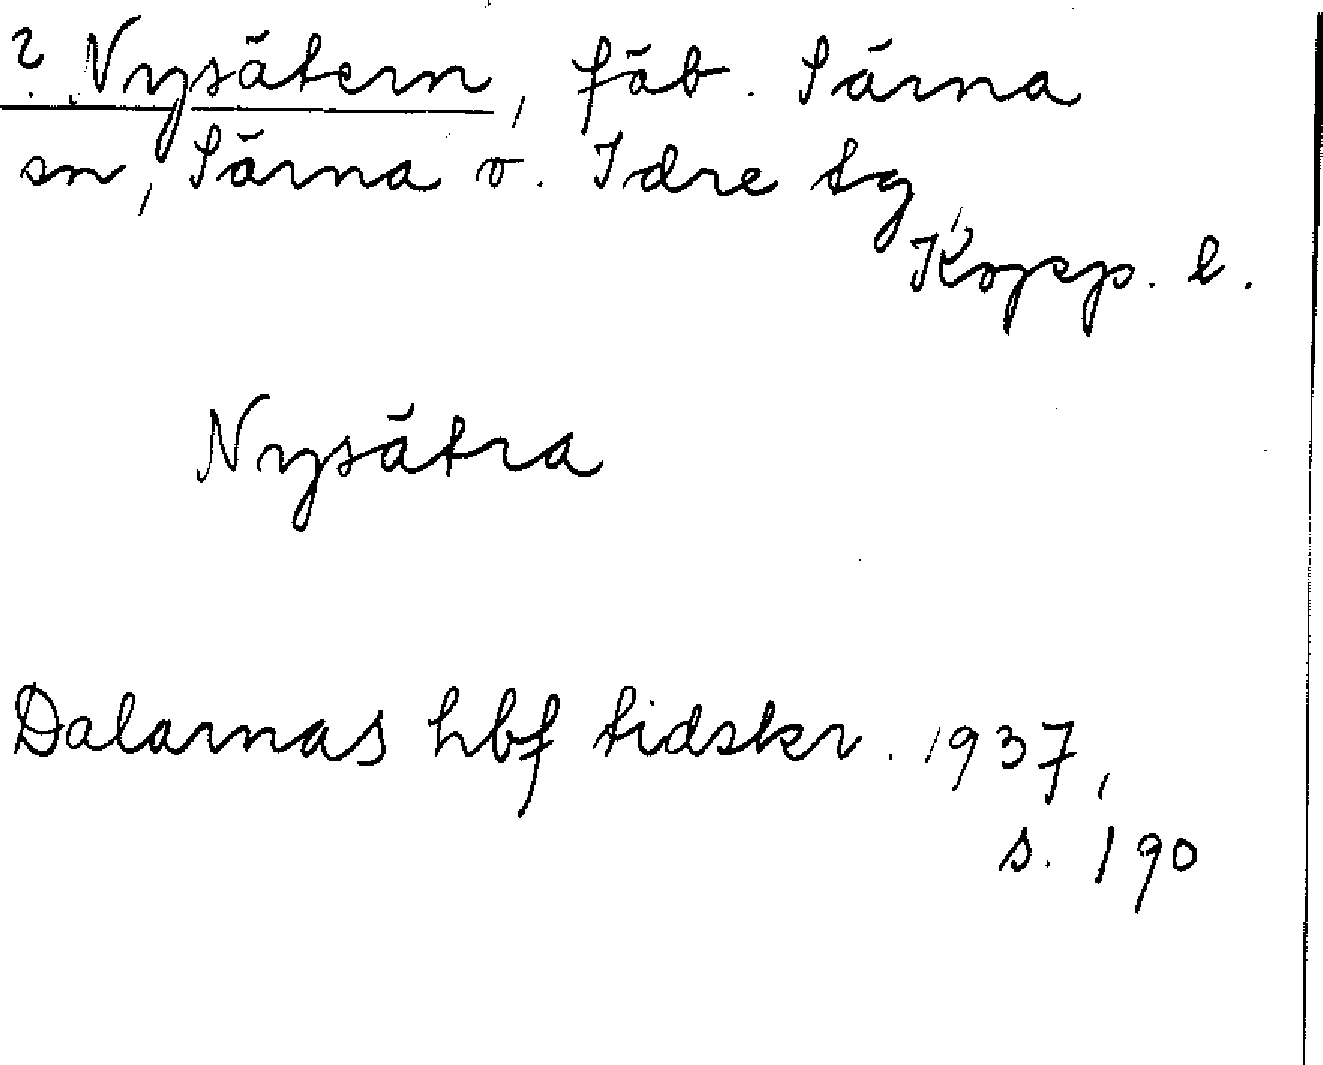 ? Nysätern, fäb. Särna
sn, Särna o. Idre tg,
Kopp. l.
Nysätra
Dalarnas hbf tidskr. 1937,
s. 190